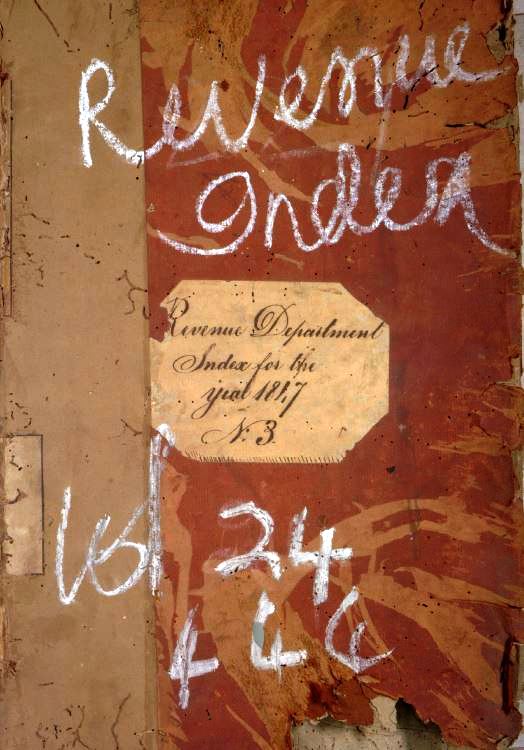 Revenue
Index
Revenue Department
Index for the
year 1847
N. 3
Vol 24